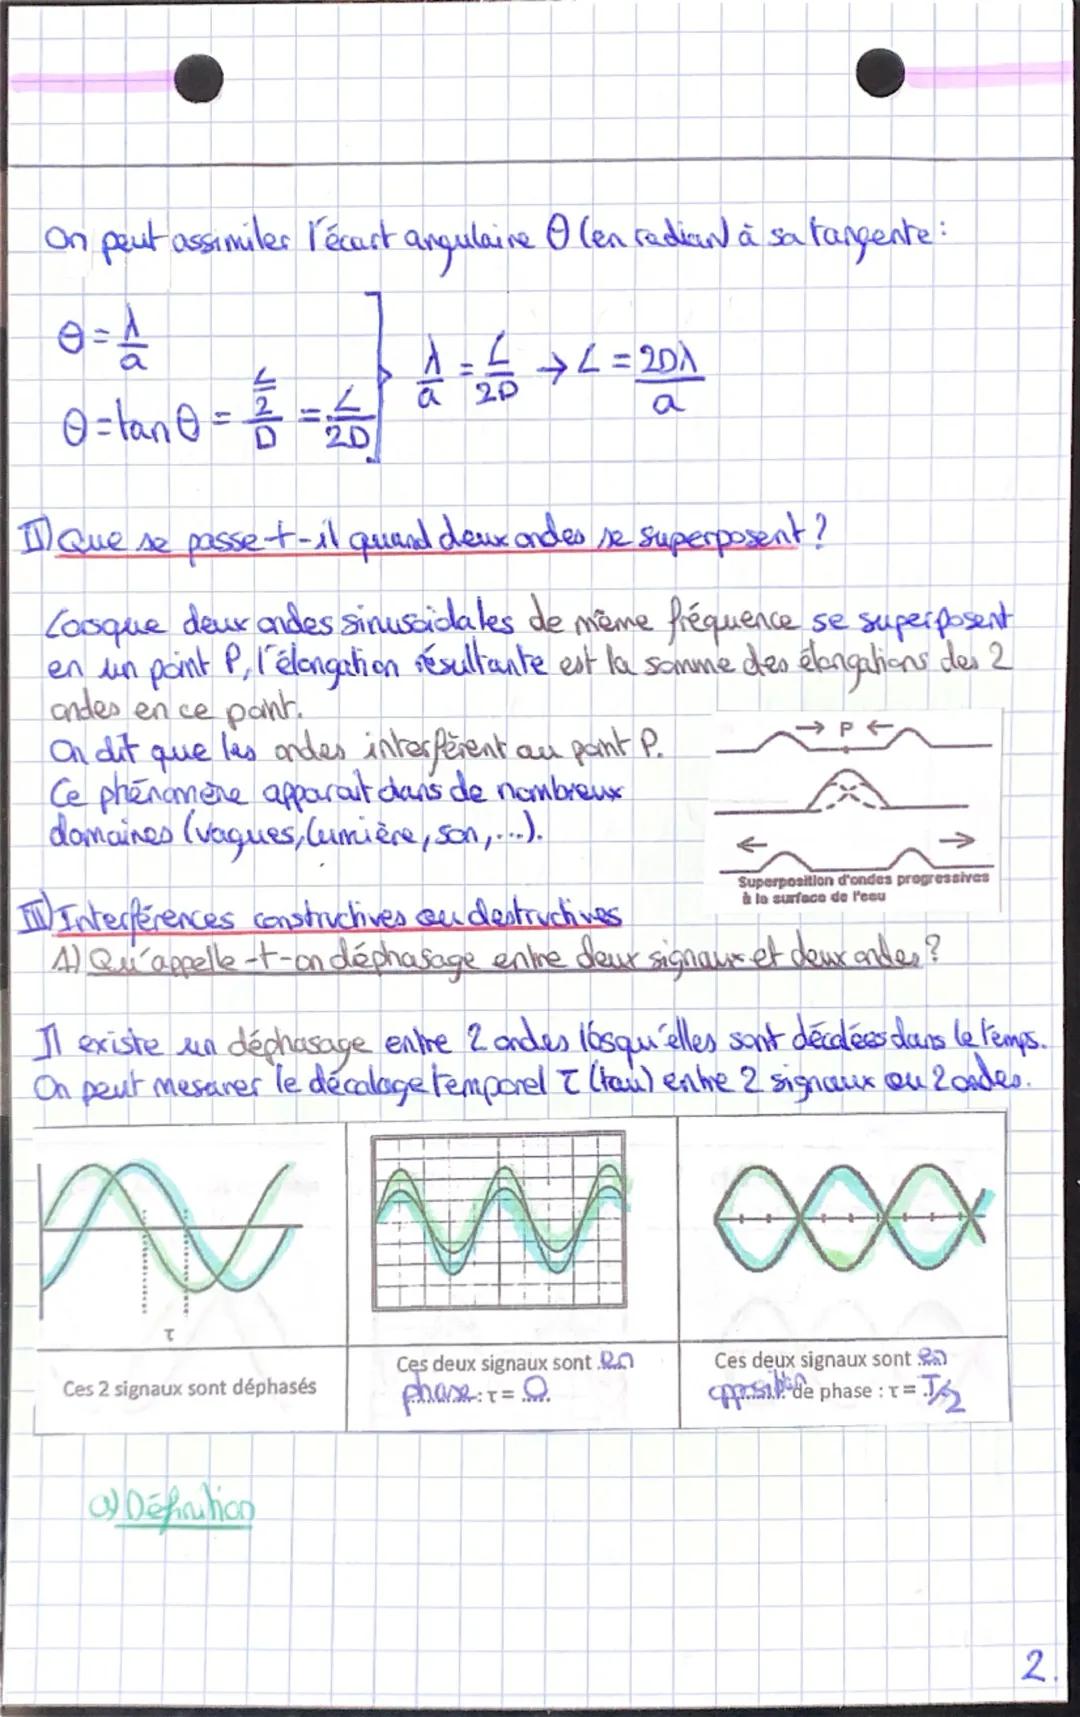 On peut assimiler l'écart angulaire θ (en radian) à sa tangente :
θ = λ/a
θ = tan θ = (L/2)/D = L/2D
λ/a = L/2D → L = 2Dλ/a
II) Que se passe-t-il quand deux ondes se superposent ?
Lorsque deux ondes sinusoidales de même fréquence se superposent
en un point P, l'élongation résultante est la somme des élongations des 2
ondes en ce point.
On dit que les ondes interfèrent au point P.
Ce phénomène apparait dans de nombreux
domaines (vagues, lumière, son, ...).
→ P ←
← →
Superposition d'ondes progressives
à la surface de l'eau
III) Interférences constructives ou destructives
1) Qu'appelle-t-on déphasage entre deux signaux et deux ondes ?
Il existe un déphasage entre 2 ondes losqu'elles sont décalées dans le temps.
On peut mesurer le décalage temporel τ (tau) entre 2 signaux ou 2 ondes.
τ
Ces 2 signaux sont déphasés
Ces deux signaux sont en
phase : τ = 0
Ces deux signaux sont en
opposition de phase : τ = T/2
a) Définition
2.